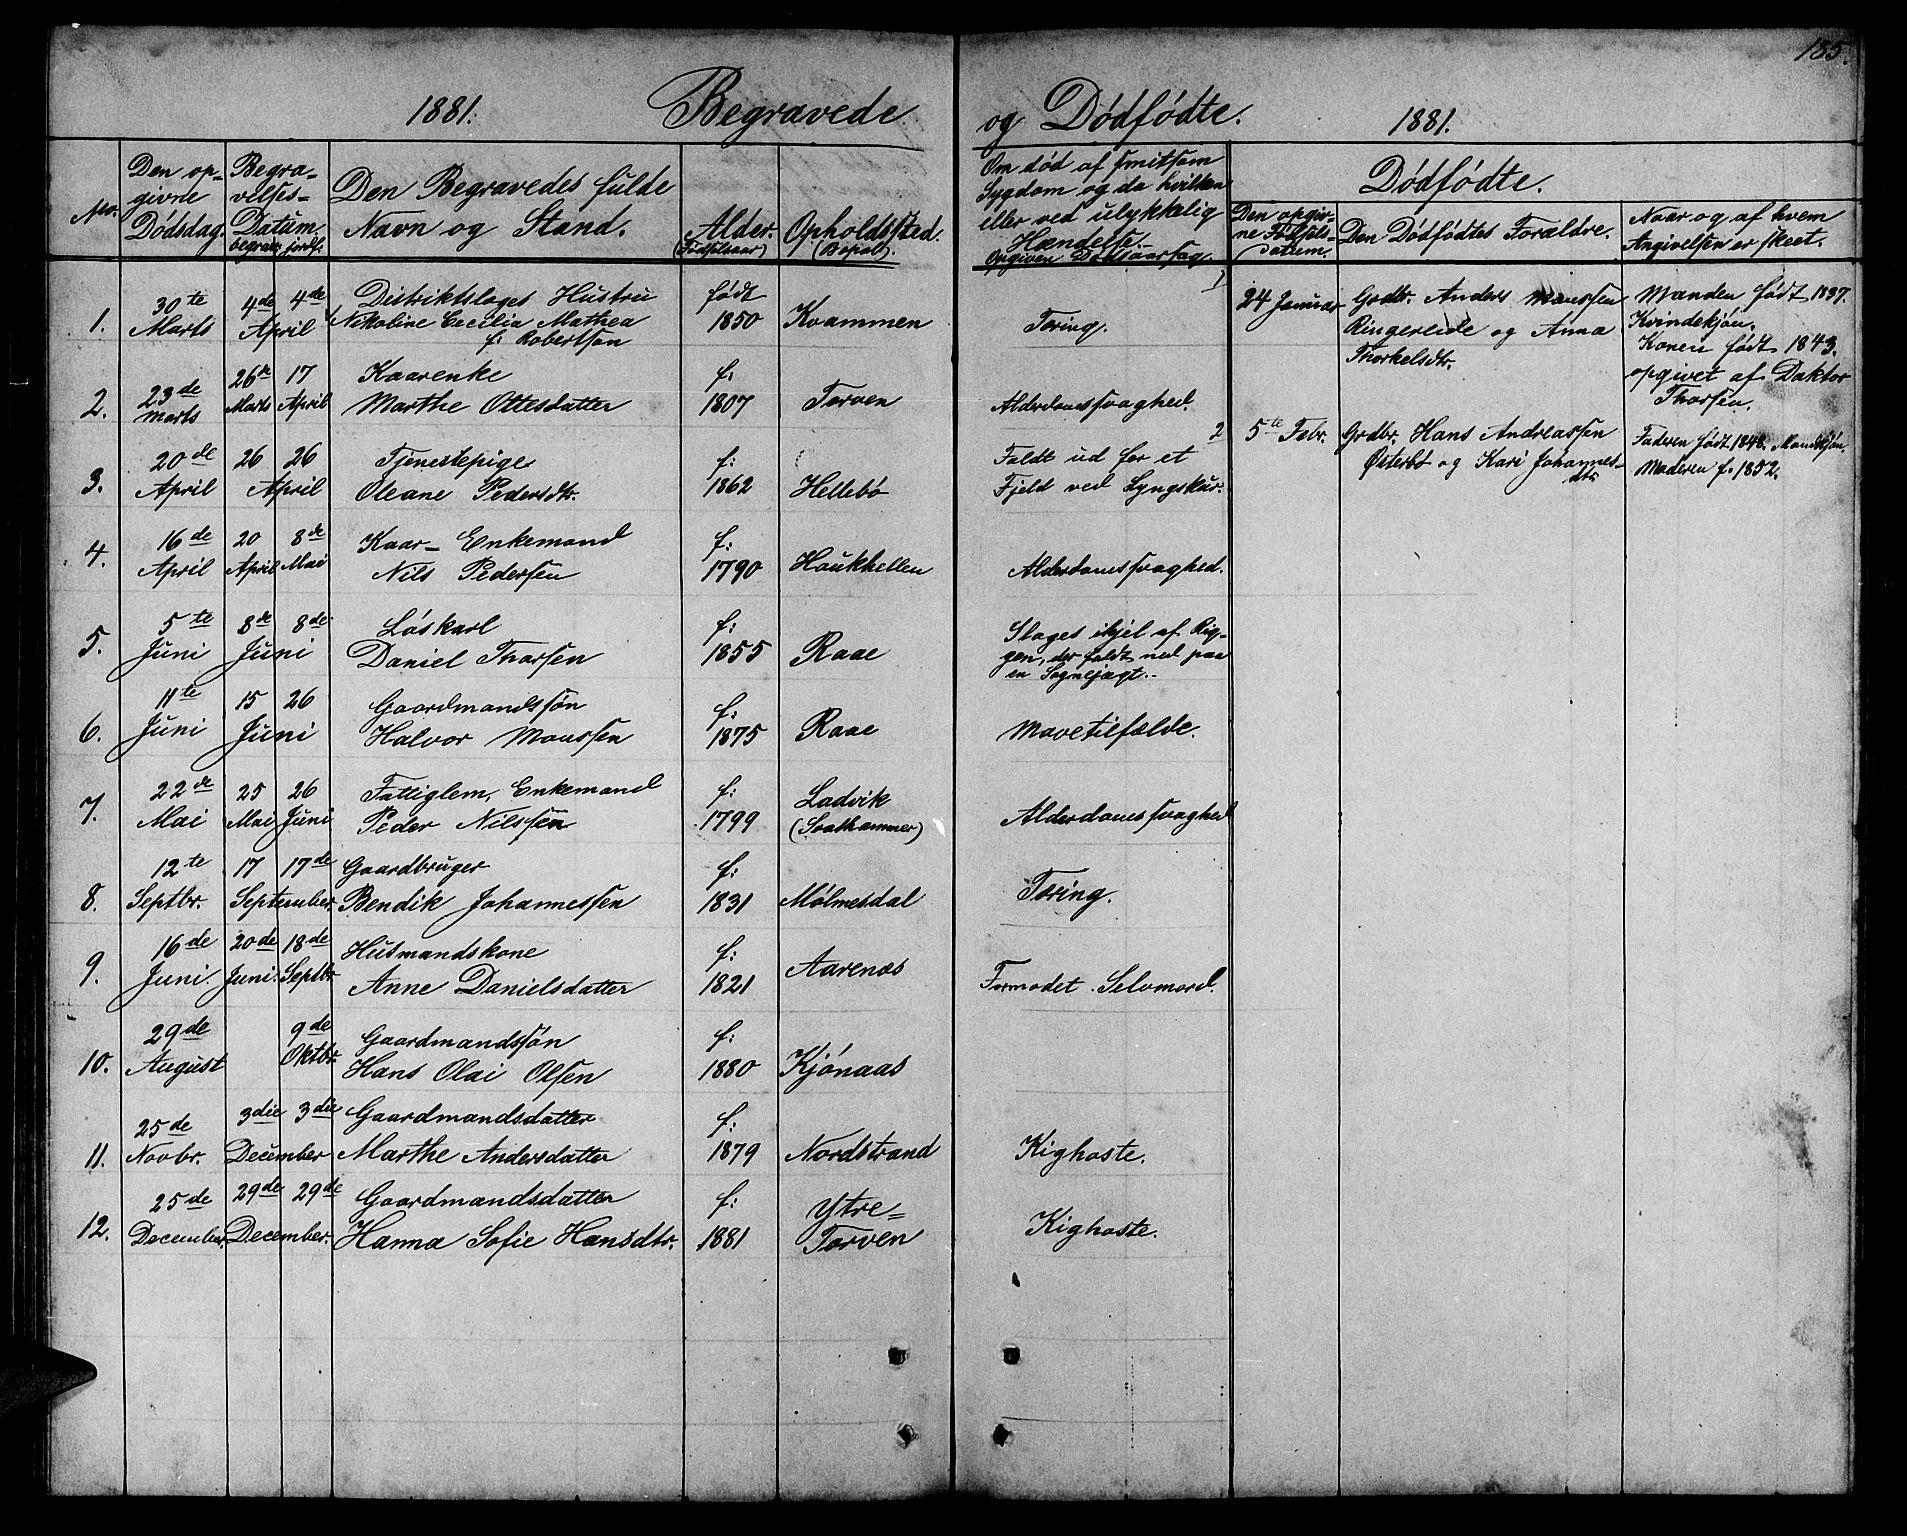 185.
1881. Begravede og Dødfødte. 1881.
No.
Den op-
givne
Dødsdag.
Begra-
velses-
Datum.
begrav. jordf.
Den Begravedes fulde
Navn og Stand.
Alder.
(Fødselsaar)
Opholdssted.
(Bopæl).
Om død af smitsom
Sygdom og da hvilken
eller ved ulykkelig
Hændelse.
Opgiven Dødsaarsag.
Dødfødte.
Den opgiv-
ne Fødsels-
datum.
Den Dødfødtes Forældre.
Naar og af hvem
Angivelsen er skeet.
1. 30te Marts
4de 4de April
Distriktslæges Hustru
Nikoline Cecilia Mathea
f: Robertson
født 1850
Kvammen
Tæring.
2. 23de Marts
26de Marts 17 April
Kaarenke
Marthe Ottesdatter
f: 1807
Torven
Alderdomssvaghed.
3. 20de April
26 26 April
Tjenestepige
Oleane Pedersdtr.
f: 1862
Hellebø
Faldt ud for et
Fjeld ved Lyngskur.
4. 16de April
20 April 8de Mai
Kaar- Enkemand
Nils Pedersen
f: 1790
Haukhellen
Alderdomssvaghed.
5. 5te Juni
8de 8de Juni
Løskarl
Daniel Thorsen
f: 1855
Raae
Sloges ihjel af Rig-
gen, der faldt ned paa
en Sognejagt.
6. 11te Juni
15 26 Juni
Gaardmandssøn
Halvor Monssen
f: 1875
Raae
Mavetilfælde.
7. 22de Mai
25 Mai 26 Juni
Fattiglem, Enkemand
Peder Nilssen
f: 1799
Ladvik
Alderdomssvaghed
8. 12te Septbr.
17 17de September.
Gaardbruger
Bendik Johannessen
f: 1831
Mølmesdal
Tæring.
9. 16de Juni.
20de Juni. 18de Septbr
Husmandskone
Anne Danielsdatter
f: 1821
Aarenæs
Formodet Selvmord.
10. 29de August
9de Oktbr.
Gaardmandssøn
Hans Olai Olsen
f: 1880
Kjønaas
11. 25de Novbr.
3die 3die December
Gaardmandsdatter
Marthe Andersdatter
f: 1879
Nordstrand
Kighoste.
12. 25de December.
29de 29de December.
Gaardmandsdatter
Hanna Sofie Hansdtr.
f: 1881
Ytre=
Torven
Kighoste.
1 24 Januar
Grdbr. Anders Monssen
Ringereide og Anna
Thorkelsdtr.
Manden født 1837.
Kvindekjøn.
Konen født 1843.
opgivet af Doktor
Thorsen.
2 5te Febr.
Grdbr. Hans Andreassen
Østerbø og Kari Johannes-
dtr
Faderen født 1848. Mandkjøn
Moderen f. 1852.